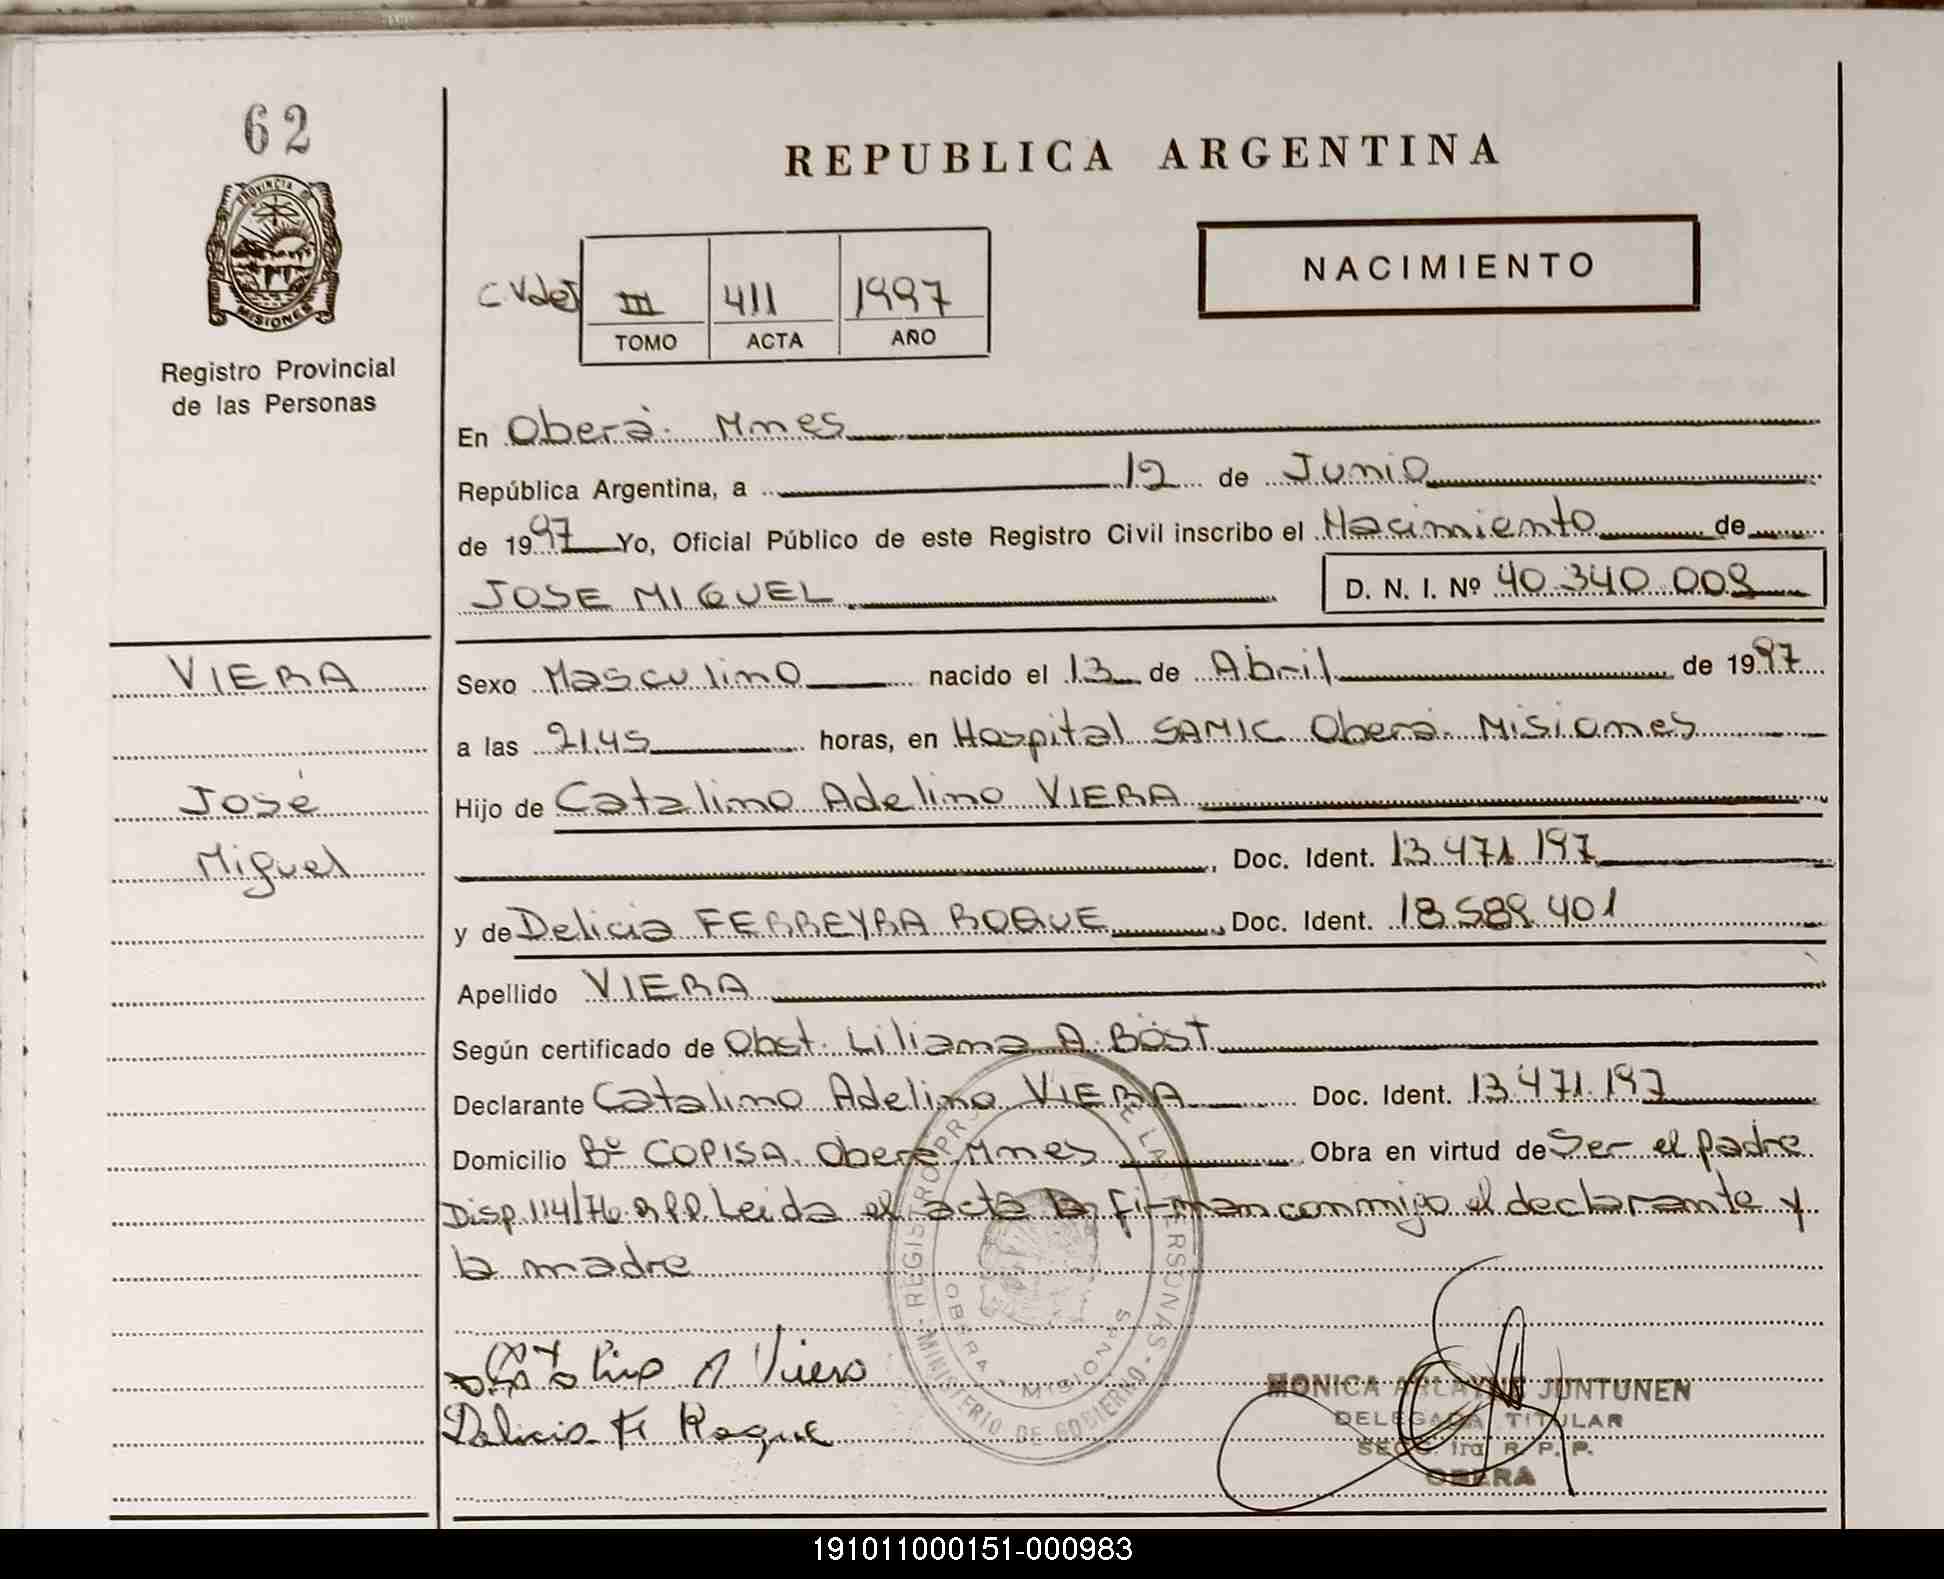 62
PROVINCIA DE
MISIONES
Registro Provincial
de las Personas
REPUBLICA ARGENTINA
NACIMIENTO
III 411 1997
TOMO ACTA AÑO
En Oberá. Mnes
República Argentina, a 12 de Junio
de 1997 Yo, Oficial Público de este Registro Civil inscribo el Nacimiento de
JOSE MIGUEL D. N. I. Nº 40.340.009
VIERA
José
Miguel
Sexo Masculino nacido el 13 de Abril de 1997
a las 21.45 horas, en Hospital SAMIC Oberá. Misiones
Hijo de Catalino Adelino VIERA
, Doc. Ident. 13.471.197
y de Delicia FERREYRA ROQUE, Doc. Ident. 18.589.401
Apellido VIERA
Según certificado de Obst. Liliana A. BÖST
Declarante Catalino Adelino VIERA Doc. Ident. 13.471.197
Domicilio Bº COPISA. Oberá Mnes Obra en virtud de Ser el padre
Disp. 114/76. Leida el acta la firman conmigo el declarante y
la madre
Catalino A Viera
Delicia F Roque
REGISTRO DE LAS PERSONAS - MINISTERIO DE GOBIERNO
OBERA MISIONES
MONICA ARLAYNE JUNTUNEN
DELEGADA TITULAR
SECC. 1ra. R. P. P.
OBERA
191011000151-000983